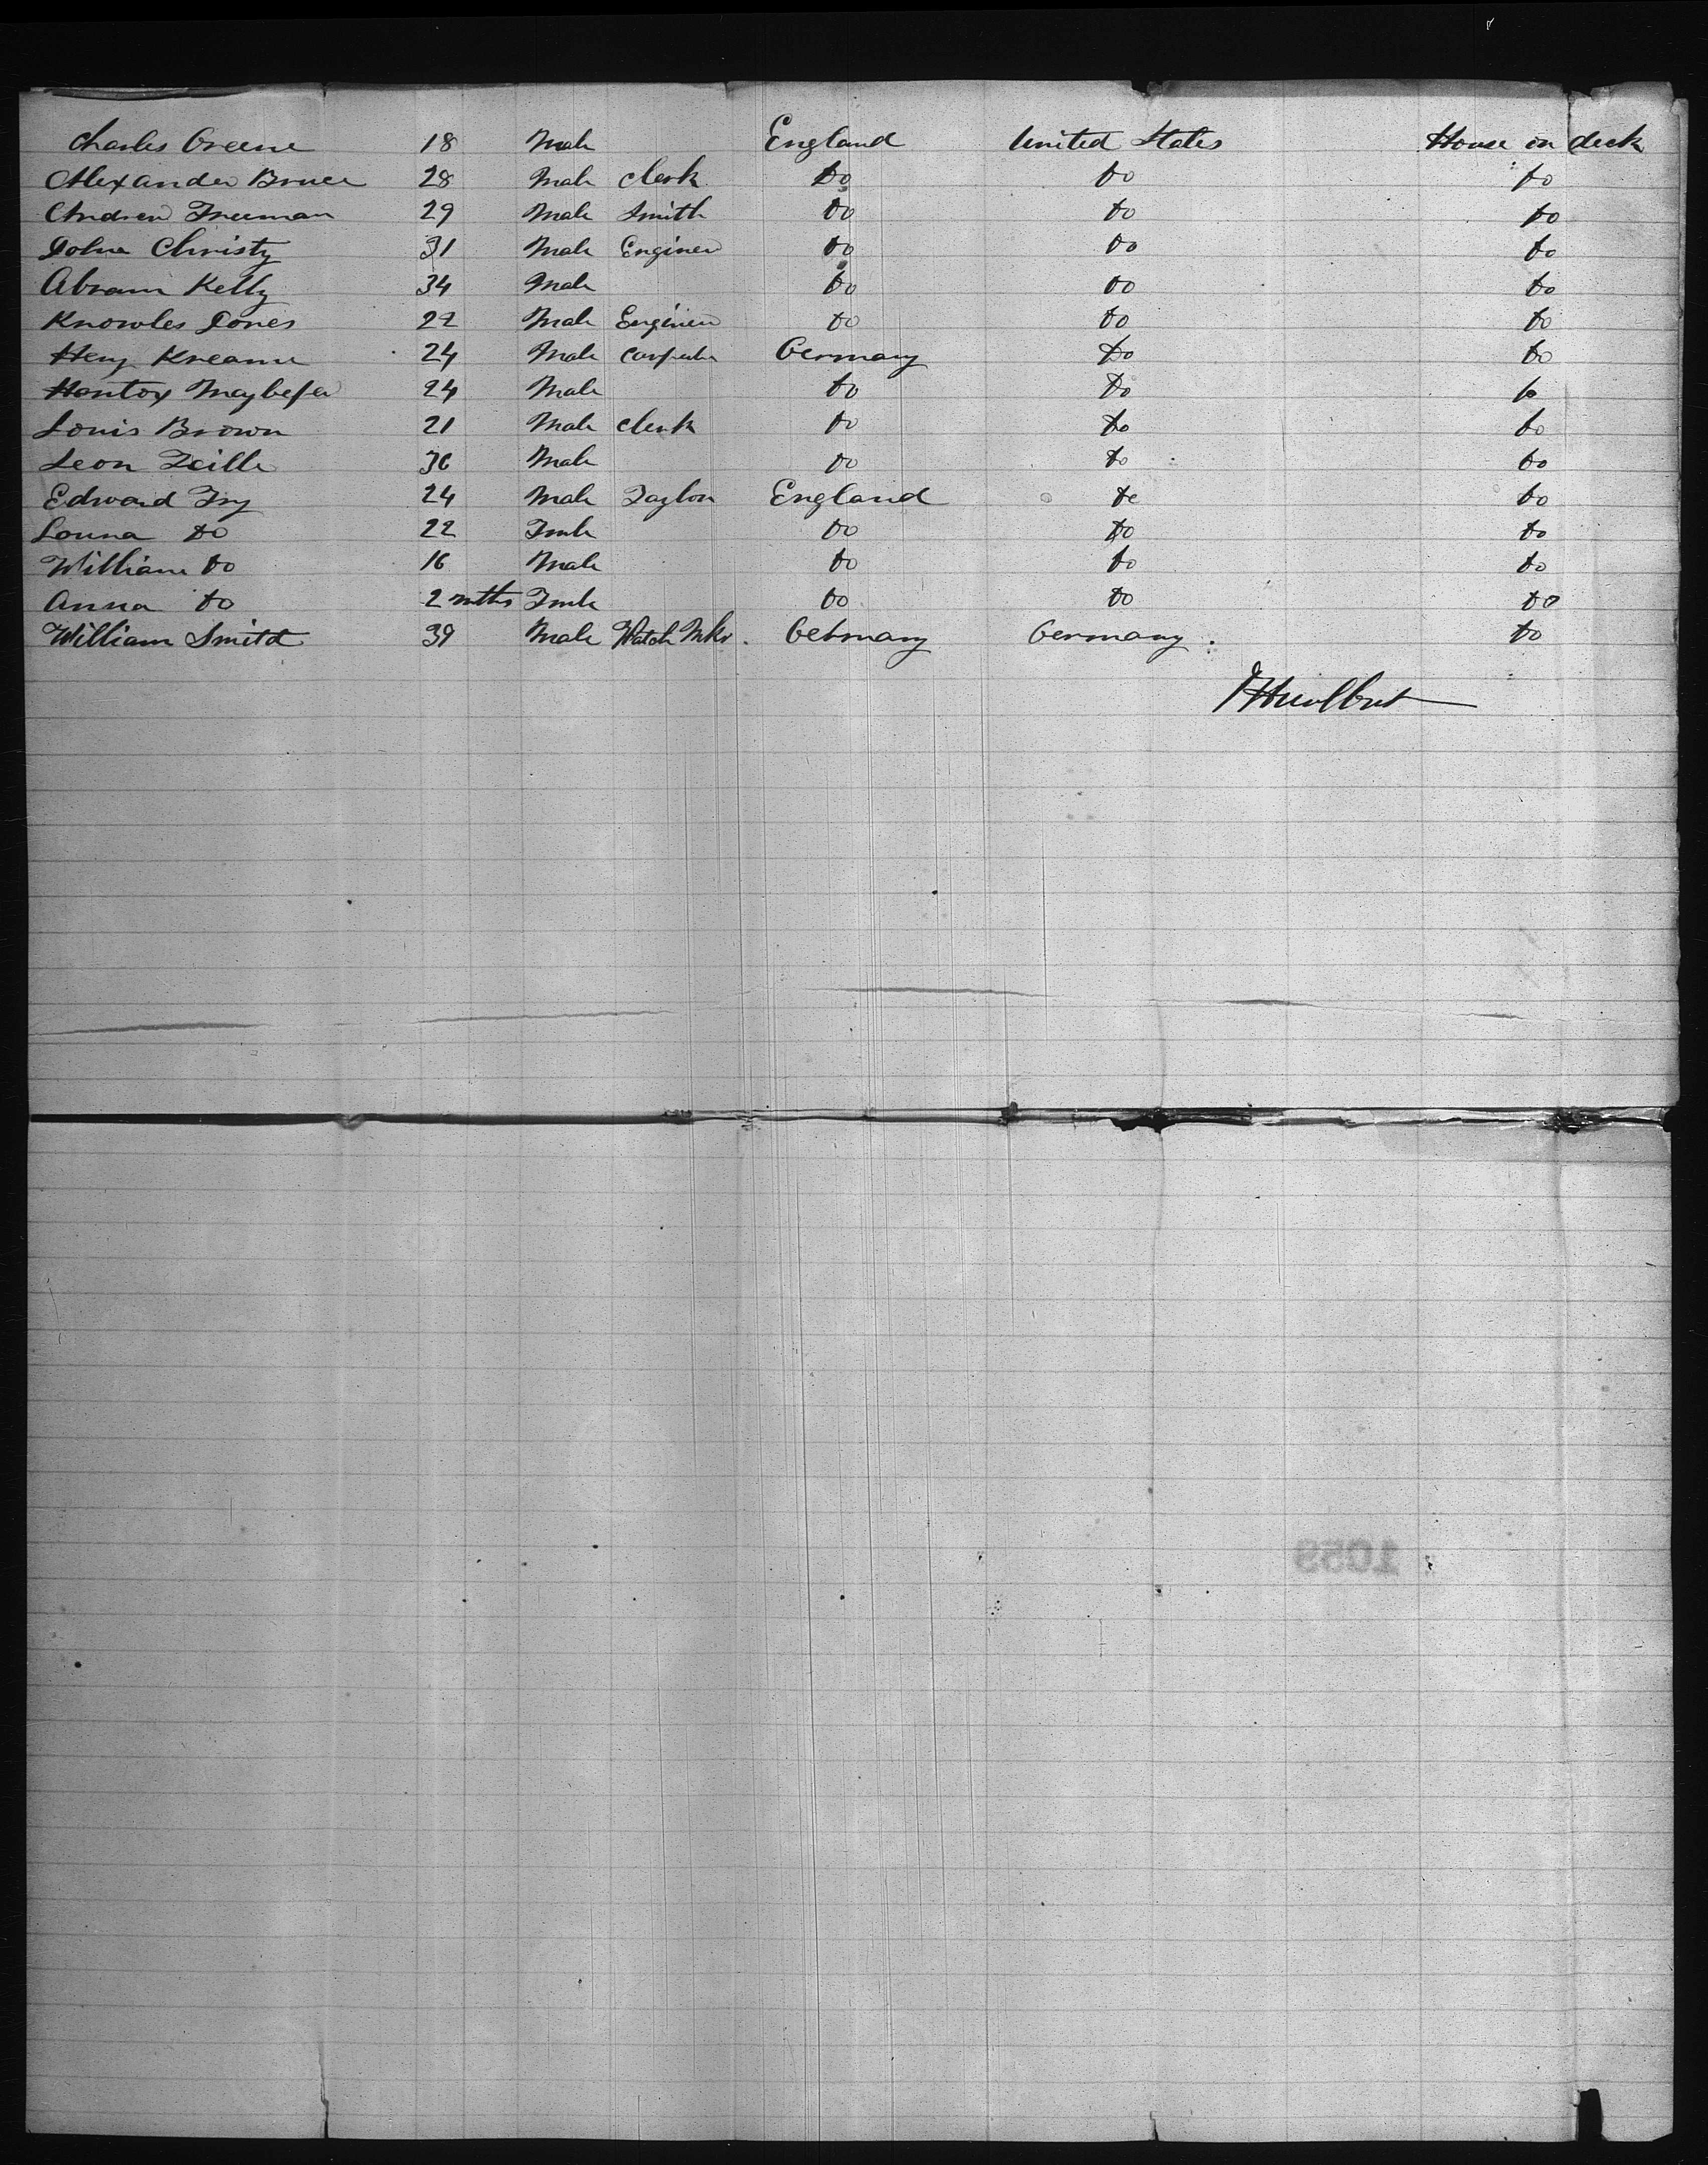 Charles Greene 18 Male England United States House on deck
Alexander Bruce 28 Male Clerk do do do
Andrew Freeman 29 Male Smith do do do
John Christy 31 Male Engineer do do do
Abram Kelly 34 Male do do do
Knowles Jones 22 Male Engineer do do do
Heny 24 Male Carpenter Germany do do
24 Male do do do
Louis Brown 21 Male Clerk do do do
Leon Zeille 36 Male do do do
Edward Fry 24 Male Taylor England do do
Louna do 22 Fmle do do do
William do 16 Male do do do
Anna do 2 mths Fmle do do do
William Smitd 39 Male Watch Mkr. Germany Germany do
1059